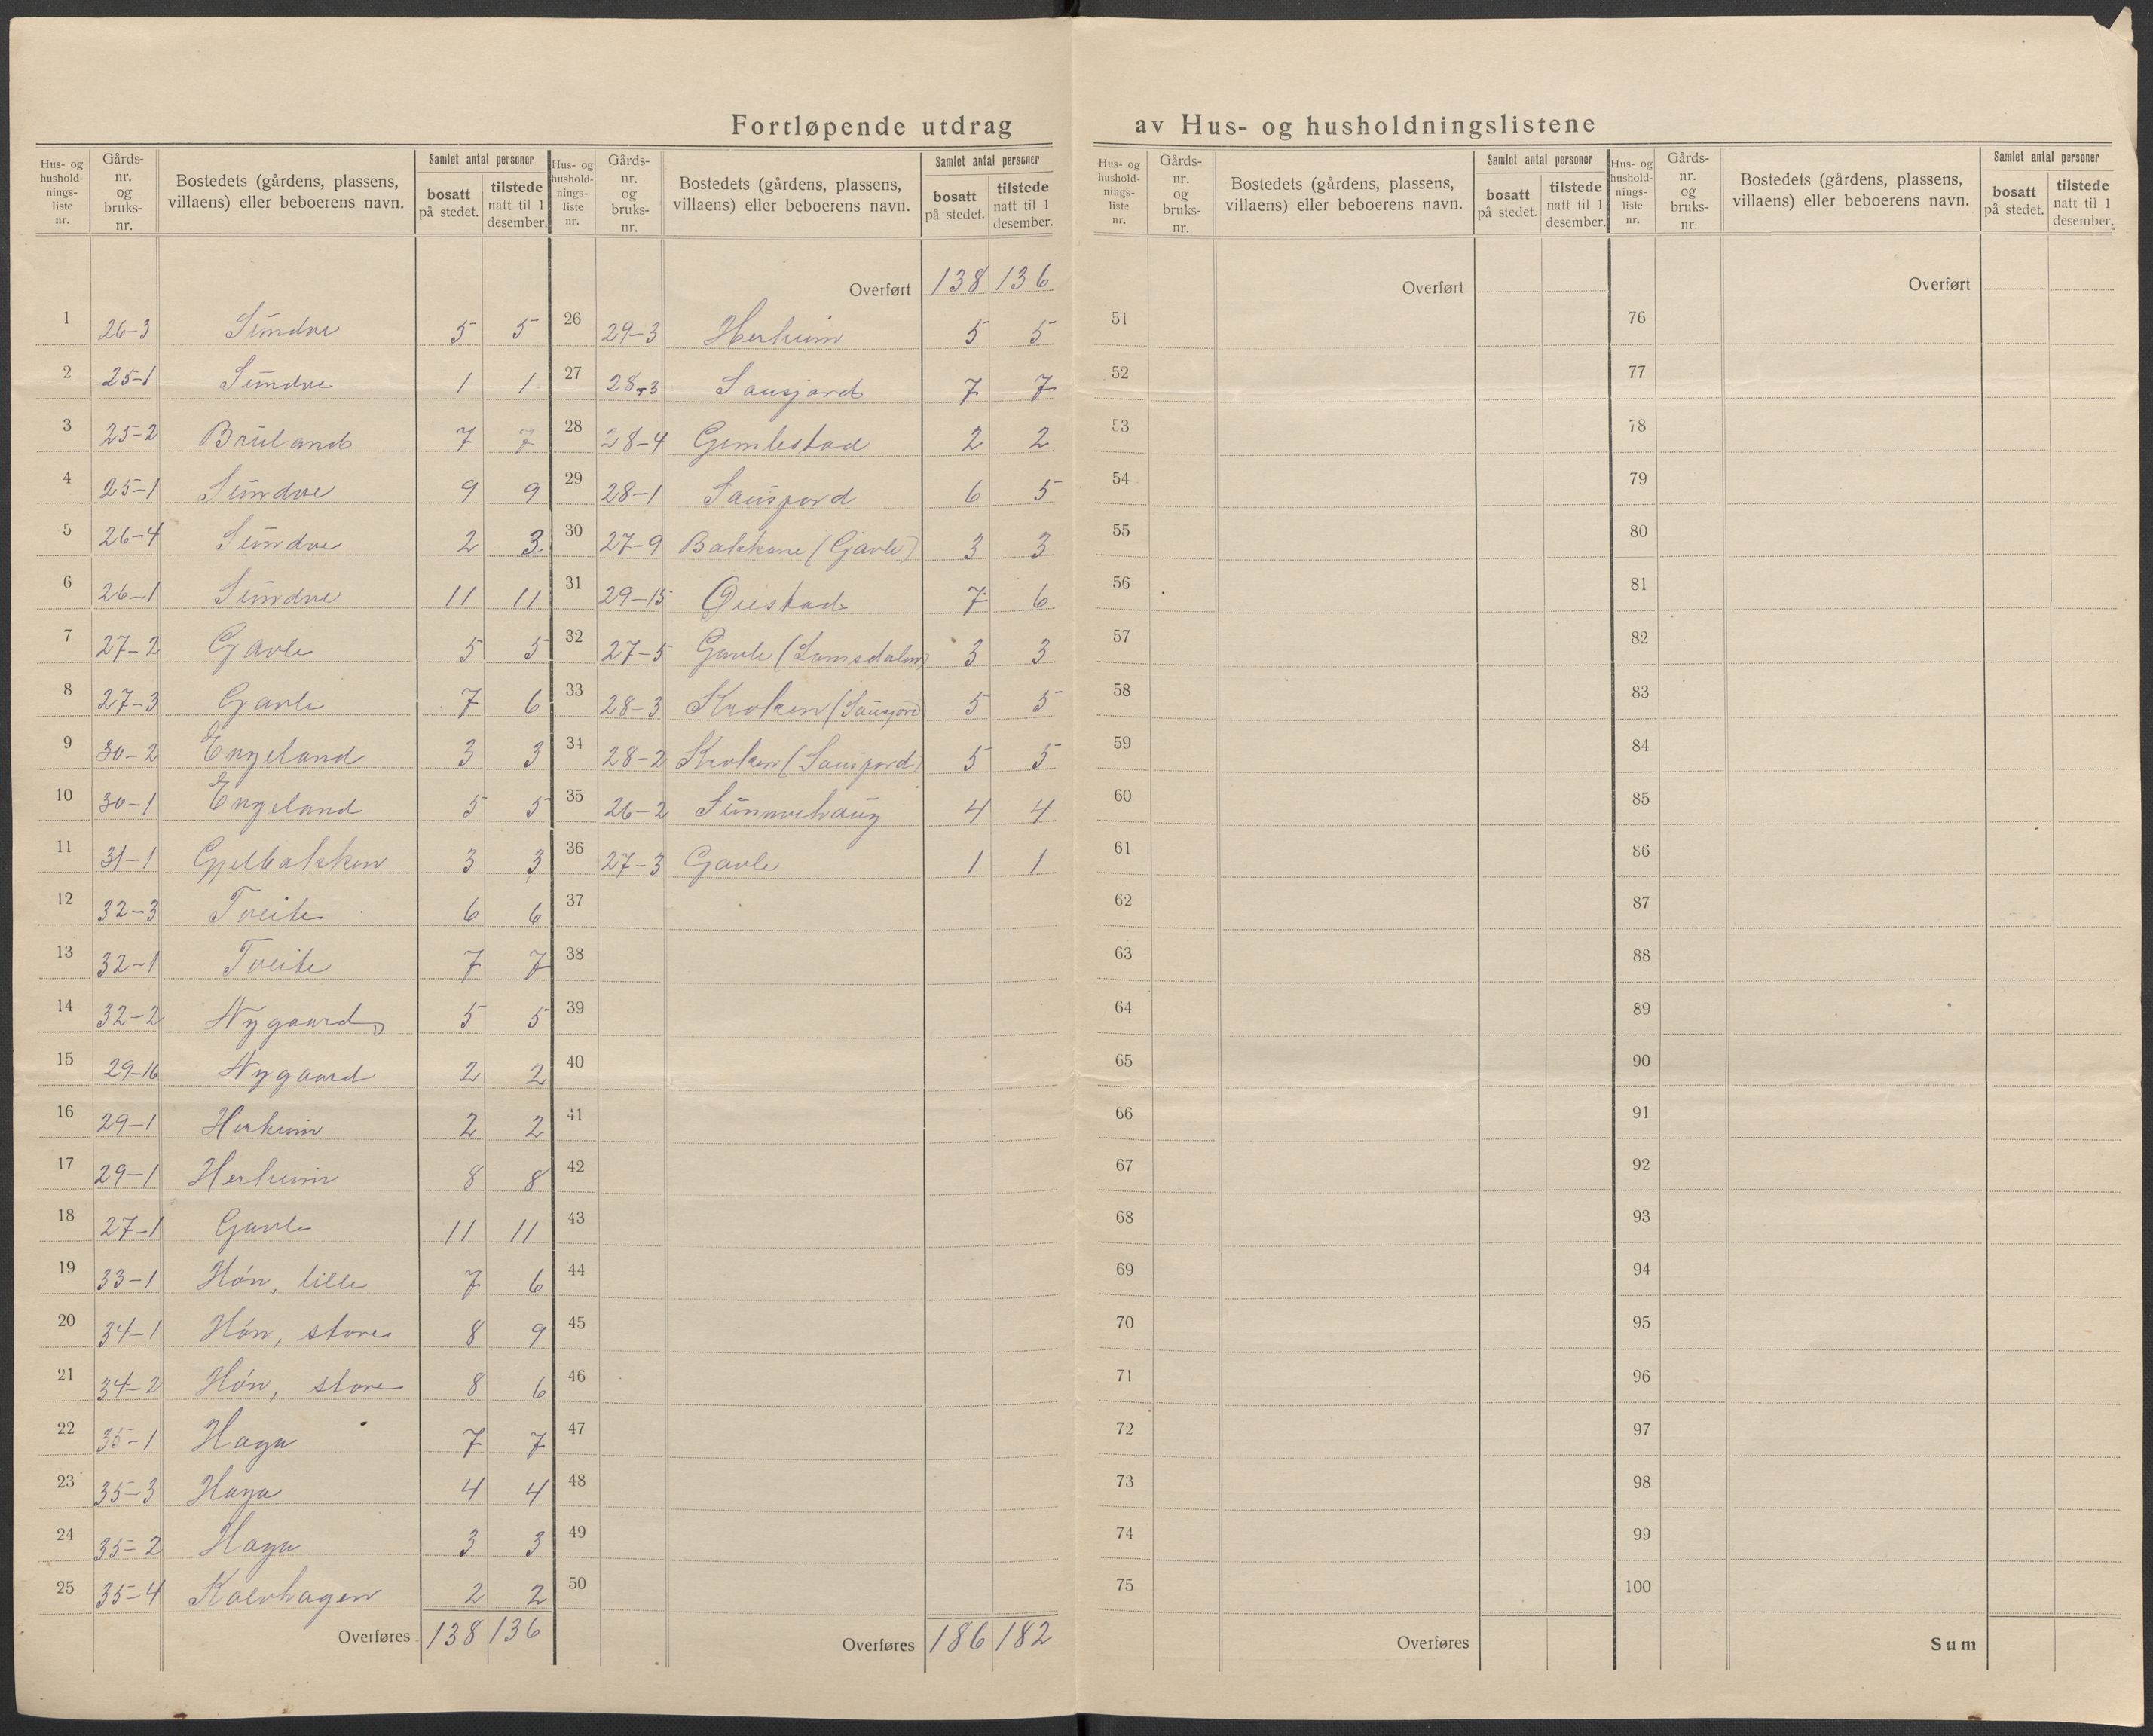 Fortløpende utdrag av Hus- og husholdningslistene
Hus- og hushold-nings-liste nr. Gårds-nr. og bruks-nr. Bostedets (gårdens, plassens, villaens) eller beboerens navn. Samlet antal personer bosatt på stedet. tilstede natt til 1 desember.
1 26-3 Sundve 5 5
2 25-1 Sundve 1 1
3 25-2 Bruland 7 7
4 25-1 Sundve 9 9
5 26-4 Sundve 2 3
6 26-1 Sundve 11 11
7 27-2 Gavle 5 5
8 27-3 Gavle 7 6
9 30-2 Engeland 3 3
10 30-1 Engeland 5 5
11 31-1 Gjelbakken 3 3
12 32-3 Tveite 6 6
13 32-1 Tveite 7 7
14 32-2 Nygaard 5 5
15 29-16 Nygaard 2 2
16 29-1 Herheim 2 2
17 29-1 Herheim 8 8
18 27-1 Gavle 11 11
19 33-1 Hón, lille 7 6
20 34-1 Hón, store 8 9
21 34-2 Hón, store 8 6
22 35-1 Haga 7 7
23 35-3 Haga 4 4
24 35-2 Haga 3 3
25 35-4 Kalvhagen 2 2
Overføres 138 136
Hus- og hushold-nings-liste nr. Gårds-nr. og bruks-nr. Bostedets (gårdens, plassens, villaens) eller beboerens navn. Samlet antal personer bosatt på stedet. tilstede natt til 1 desember.
Overført 138 136
26 29-3 Herheim 5 5
27 28-3 Sausjord 7 7
28 28-4 Gimlestad 2 2
29 28-1 Sausjord 6 5
30 27-9 Bakkane (Gavle) 3 3
31 29-15 Øiestad 7 6
32 27-5 Gavle (Lamsdalen) 3 3
33 28-3 Kroken (Sausjord) 5 5
34 28-2 Kroken (Sausjord) 5 5
35 26-2 Sunnvehaug 4 4
36 27-3 Gavle 1 1
37
38
39
40
41
42
43
44
45
46
47
48
49
50
Overføres 186 182
Hus- og hushold-nings-liste nr. Gårds-nr. og bruks-nr. Bostedets (gårdens, plassens, villaens) eller beboerens navn. Samlet antal personer bosatt på stedet. tilstede natt til 1 desember.
Overført
51
52
53
54
55
56
57
58
59
60
61
62
63
64
65
66
67
68
69
70
71
72
73
74
75
Overføres
Hus- og hushold-nings-liste nr. Gårds-nr. og bruks-nr. Bostedets (gårdens, plassens, villaens) eller beboerens navn. Samlet antal personer bosatt på stedet. tilstede natt til 1 desember.
Overført
76
77
78
79
80
81
82
83
84
85
86
87
88
89
90
91
92
93
94
95
96
97
98
99
100
Sum